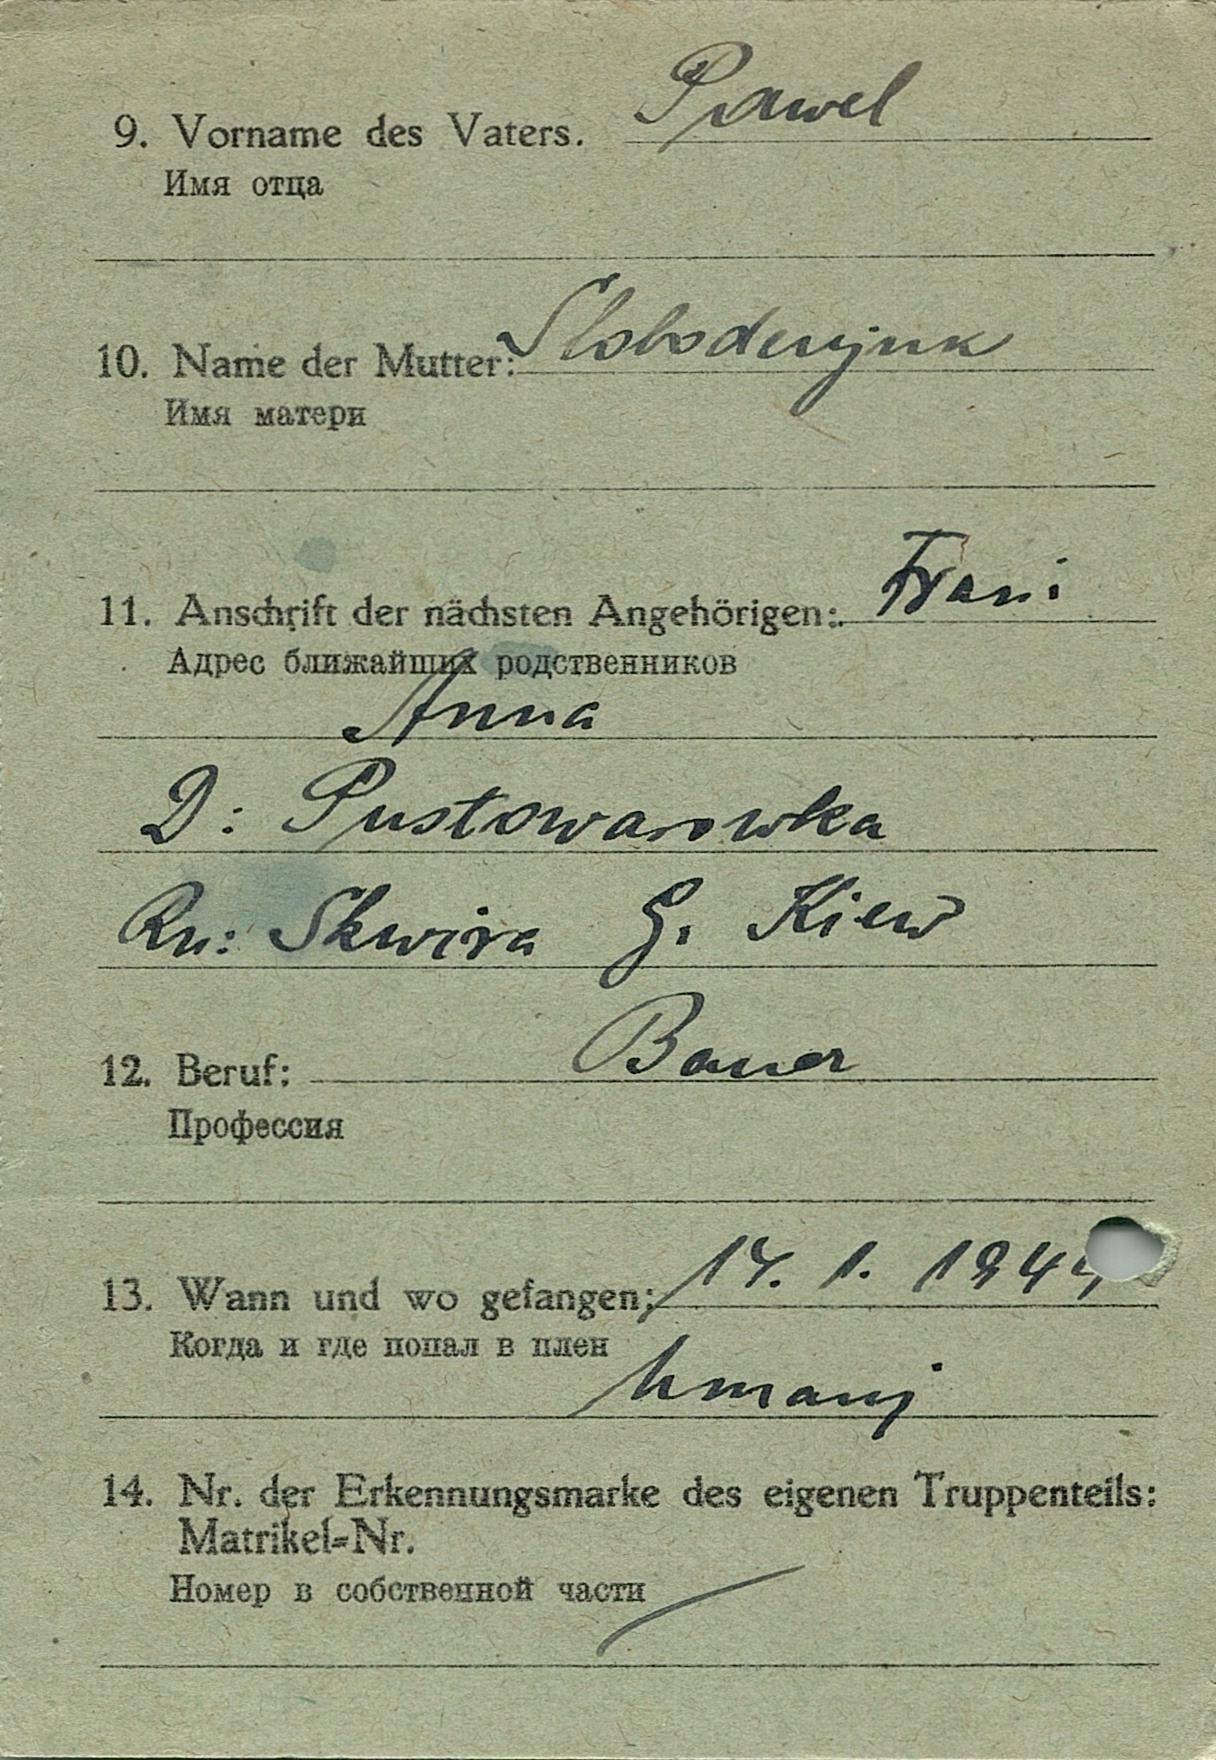 9. Vorname des Vaters. Pawel
Имя отца
10. Name der Mutter: Slobodenjuk
Имя матери
11. Anschrift der nächsten Angehörigen:
Адрес ближайших родственников
Anna
D: Pustowarowka
Rn: Skwira G. Kiew
12. Beruf: Bauer
Профессия
13. Wann und wo gefangen: 14. 1. 1944
Когда и где попал в плен
Umanj
14. Nr. der Erkennungsmarke des eigenen Truppenteils:
Matrikel=Nr.
Номер в собственной части